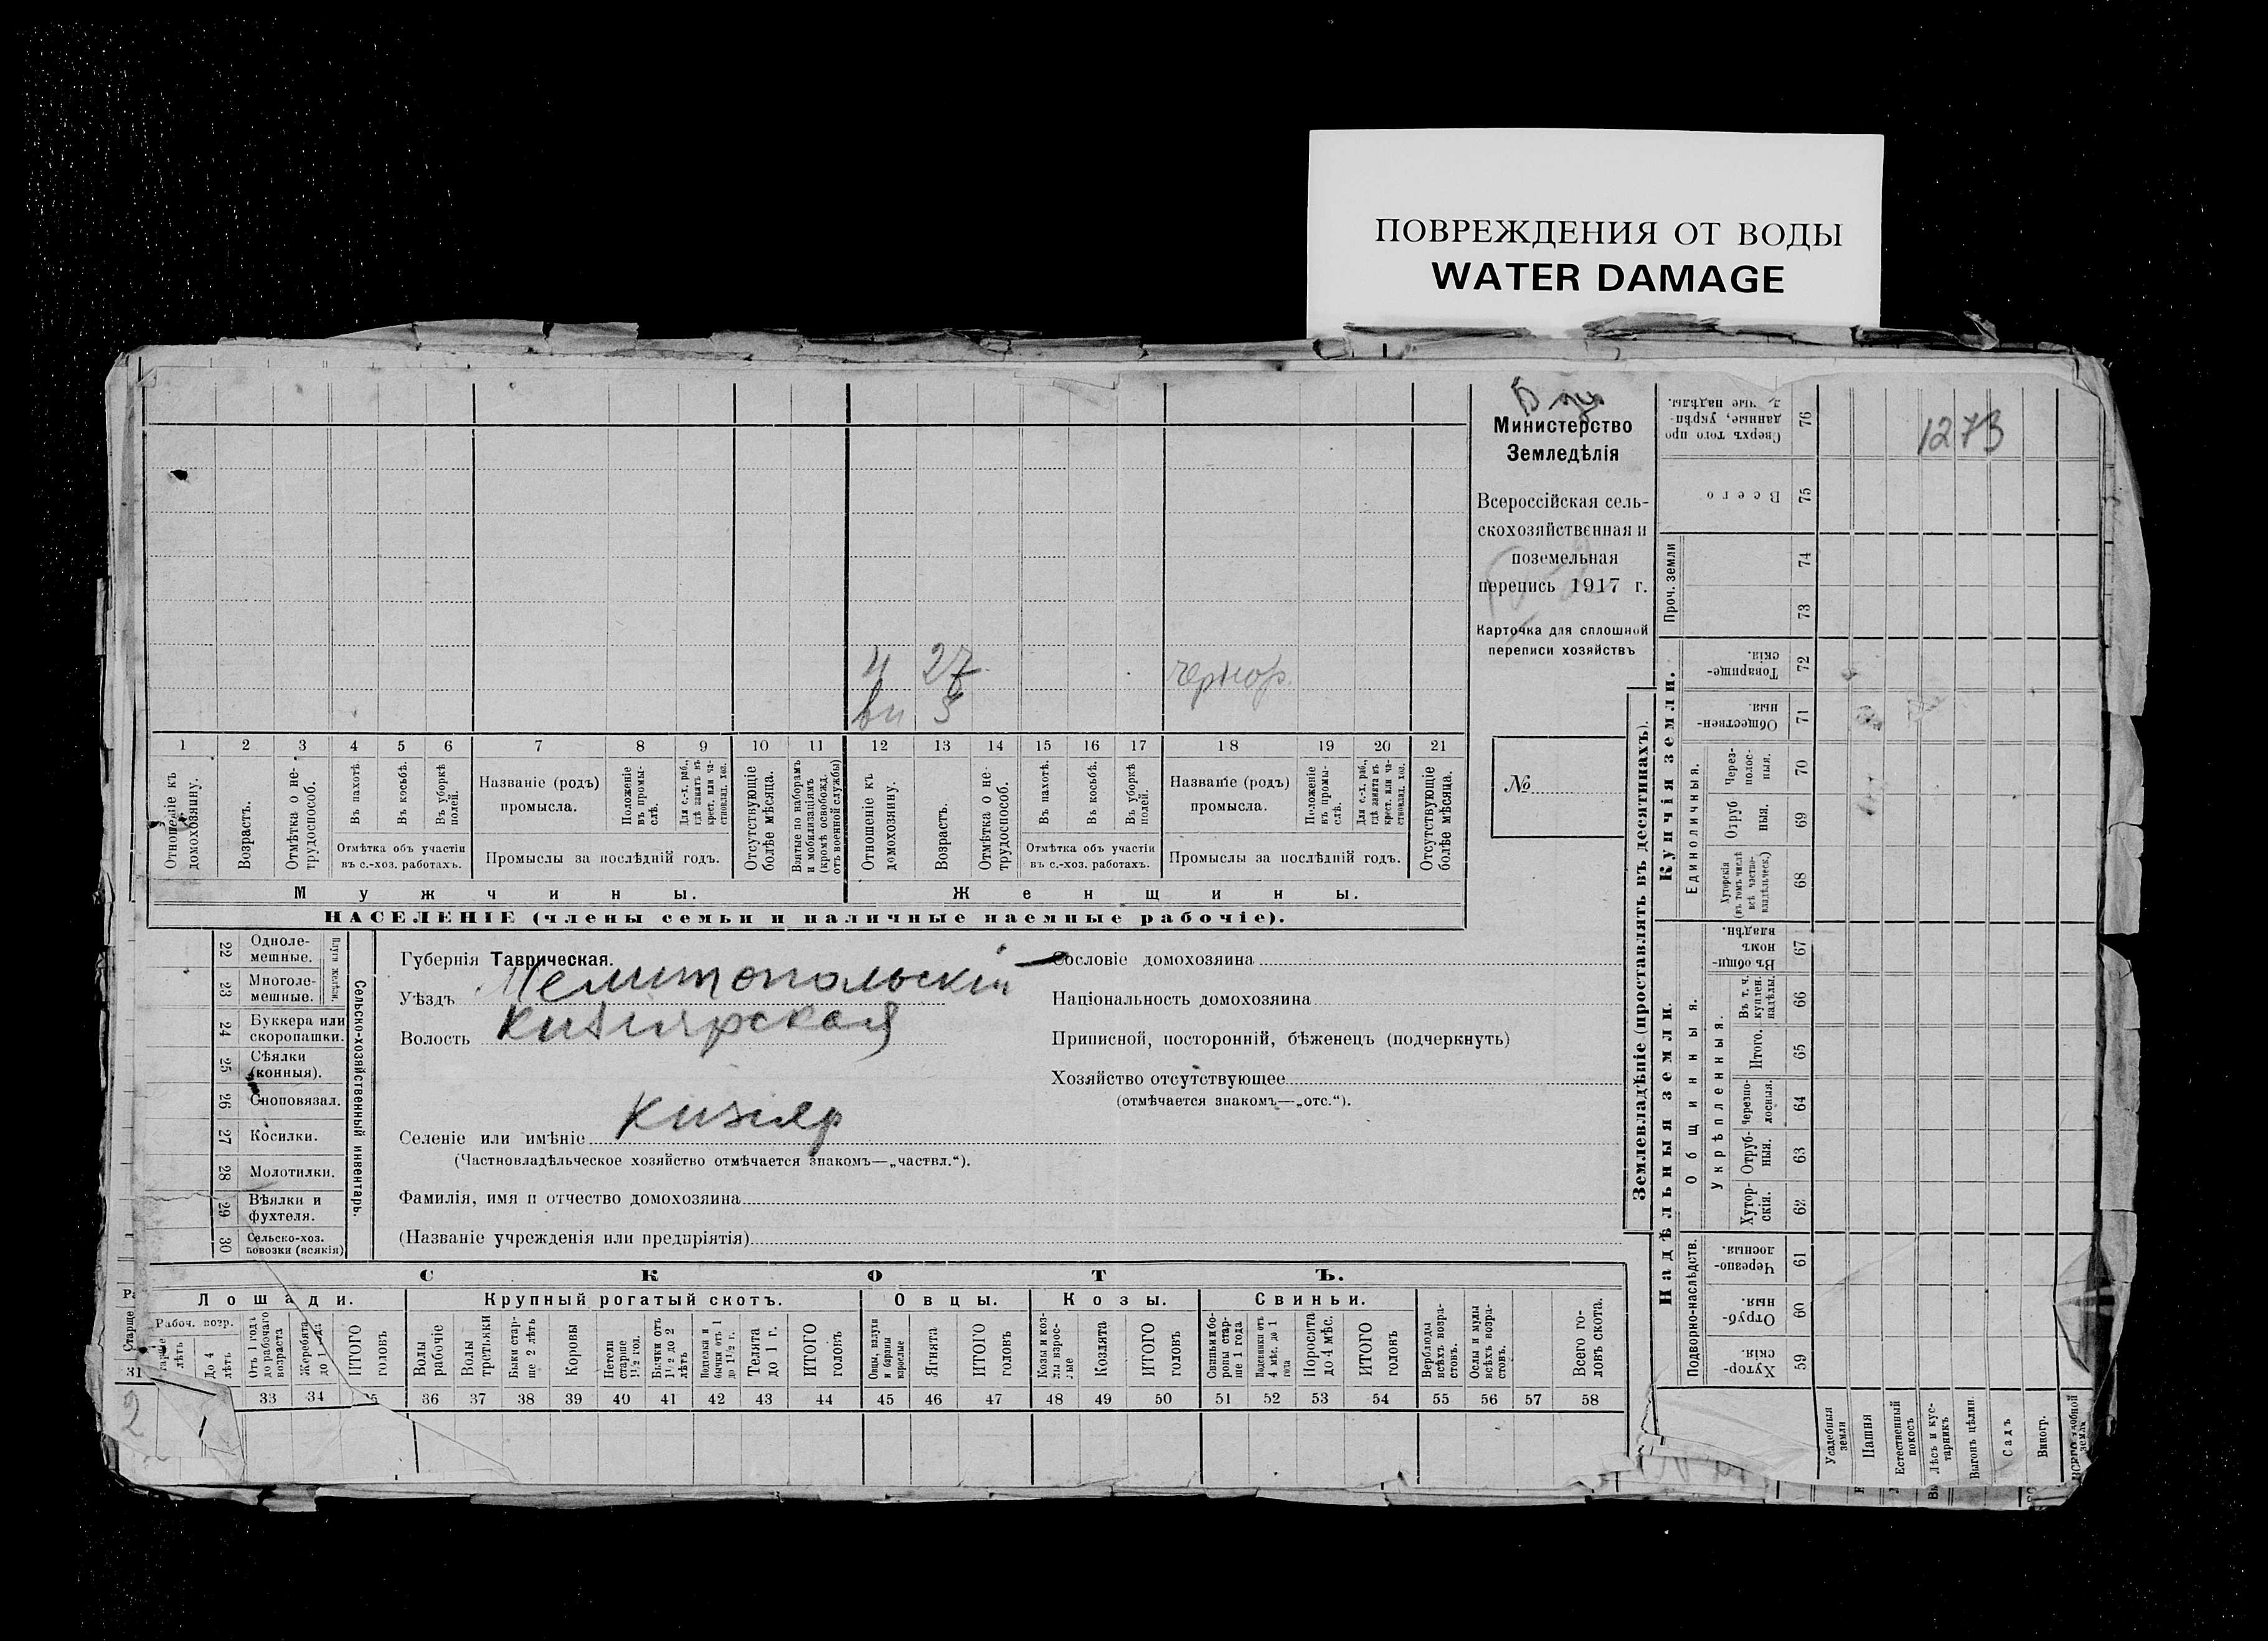 ПОВРЕЖДЕНИЯ ОТ ВОДЫ
WATER DAMAGE
1273
Министерство
Земледѣлія
Всероссійская сель-
скохозяйственная и
поземельная
перепись 1917 г.
Карточка для сплошной
переписи хозяйствъ
№
27
чернор.
5
1 2 3 4 5 6 7 8 9 10 11 12 13 14 15 16 17 18 19 20 21
Отношеніе къ домохозяину.
Возрастъ.
Отмѣтка о не-трудоспособ.
Въ пахотѣ.
Въ косьбѣ.
Въ уборкѣ полей.
Отмѣтка объ участіи
въ с.-хоз. работахъ.
Названіе (родъ)
промысла.
Положеніе въ промы-слѣ.
Для с.-х. раб., гдѣ занятъ въ крест. или ча-стновлад. хоз.
Промыслы за послѣдній годъ.
Отсутствующіе болѣе мѣсяца.
Взятые по наборамъ и мобилизаціямъ (кромѣ освобожд. отъ военной службы)
Отношеніе къ домохозяину.
Возрастъ.
Отмѣтка о не-трудоспособ.
Въ пахотѣ.
Въ косьбѣ.
Въ уборкѣ полей.
Отмѣтка объ участіи
въ с.-хоз. работахъ.
Названіе (родъ)
промысла.
Положеніе въ промы-слѣ.
Для с.-х. раб., гдѣ занятъ въ крест. или ча-стновлад. хоз.
Промыслы за послѣдній годъ.
Отсутствующіе болѣе мѣсяца.
Мужчины.
Женщины.
НАСЕЛЕНІЕ (члены семьи и наличные наемные рабочіе).
22 Одноле-мешные.
23 Многоле-мешные.
Плуги желѣзн.
24 Буккера или скоропашки.
25 Сѣялки (конныя).
26 Сноповязал.
27 Косилки.
28 Молотилки.
29 Вѣялки и фухтеля.
30 Сельско-хоз. повозки (всякія)
Сельско-хозяйственный инвентарь.
Губернія Таврическая.
Уѣздъ Мелитопольскій
Волость Кизиярская
Селеніе или имѣніе Кизияр
(Частновладѣльческое хозяйство отмѣчается знакомъ—„частвл.“).
Фамилія, имя и отчество домохозяина
(Названіе учрежденія или предпріятія)
Сословіе домохозяина
Національность домохозяина
Приписной, посторонній, бѣженецъ (подчеркнуть)
Хозяйство отсутствующее
(отмѣчается знакомъ—„отс.“).
СКОТЪ.
Лошади.
Крупный рогатый скотъ.
Овцы.
Козы.
Свиньи.
Рабоч. возр.
Старше
лѣтъ
До 4 лѣтъ
Отъ 1 года до рабочаго возраста
Жеребята до 1 года
ИТОГО головъ
Волы рабочіе
Волы третьяки
Быки стар-ше 2 лѣтъ
Коровы
Нетели старше 1½ год.
Бычки отъ 1½ до 2 лѣтъ
Подтелки и бычки отъ 1 до 1½ г.
Телята до 1 г.
ИТОГО головъ
Овцы, валухи и бараны взрослые
Ягнята
ИТОГО головъ
Козы и коз-лы взрос-лые
Козлята
ИТОГО головъ
Свиньи и бо-ровы стар-ше 1 года
Подсвинки отъ 4 мѣс. до 1 года
Поросята до 4 мѣс.
ИТОГО головъ
Верблюды всѣхъ возра-стовъ.
Ослы и мулы всѣхъ возра-стовъ.
Всего го-ловъ скота.
31 33 34 35 36 37 38 39 40 41 42 43 44 45 46 47 48 49 50 51 52 53 54 55 56 57 58
2
Землевладѣніе (проставлять въ десятинахъ).
Надѣльныя земли.
Купчія земли.
Проч. земли
Подворно-наслѣдств.
Общинныя.
Укрѣпленныя.
Единоличныя.
Хутор-скія. 59
Отруб-ныя. 60
Черезпо-лосныя. 61
Хутор-скія. 62
Отруб-ныя. 63
Черезпо-лосныя. 64
Итого. 65
Въ т. ч. куплен. надѣлы. 66
Въ общин-номъ владѣн. 67
Хуторскія (въ томъ числѣ всѣ частно-владѣльческ.) 68
Отруб ныя. 69
Через-полос-ныя. 70
Обществен-ныя. 71
Товарище-скія. 72
73
74
Всего 75
Сверхъ того про
данные, укрѣп-
ные надѣлы. 76
Усадебныя земли
Пашня
Естественный покосъ
Лѣсъ и кус-тарникъ
Выгонъ цѣлин.
Садъ
Виногр.